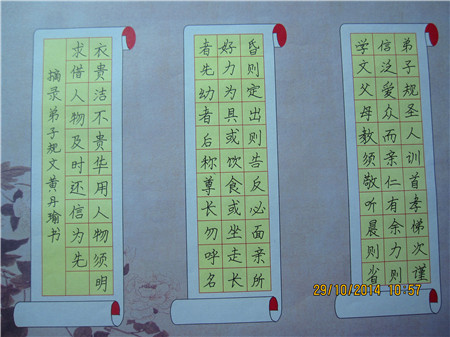 弟子规圣人训首孝悌次谨
信泛爱众而亲仁有余力则
学文父母教须敬听晨则省
昏则定出则告反必面亲所
好力为具或饮食或坐走长
者先幼者后称尊长勿呼名
衣贵洁不贵华用人物须明
求借人物及时还信为先
摘录弟子规文黄丹瑜书
29/10/2014 10:57